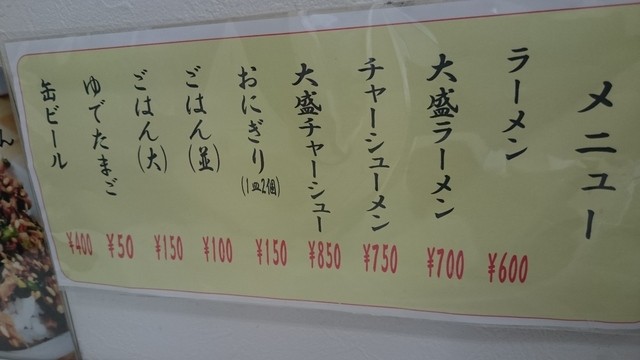 メニュー
ラーメン ¥600
大盛ラーメン ¥700
チャーシューメン ¥750
大盛チャーシュー ¥850
おにぎり(1皿2個) ¥150
ごはん(並) ¥100
ごはん(大) ¥150
ゆでたまご ¥50
缶ビール ¥400
ん